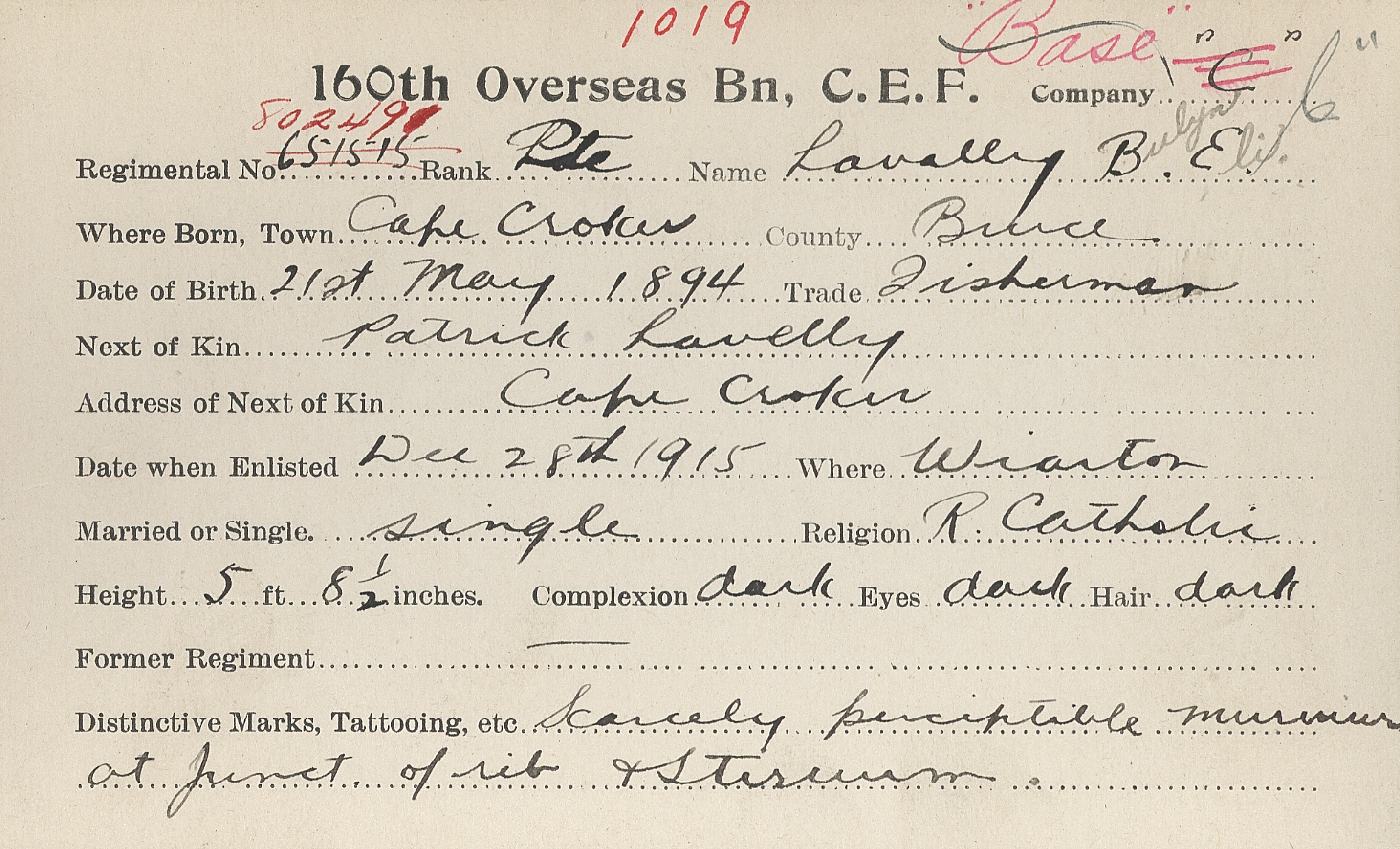 1019 "Base" "C" 6"
160th Overseas Bn, C.E.F. Company
802491
Regimental No. 651515 Rank Pte Name Lavally B. Eli.
Where Born, Town Cape Croker County Bruce
Date of Birth 21st May 1894 Trade Fisherman
Next of Kin Patrick Lavelly
Address of Next of Kin Cape Croker
Date when Enlisted Dec 28th 1915 Where Wiarton
Married or Single. single Religion R. Catholic
Height 5 ft. 8 1/2 inches. Complexion dark Eyes dark Hair dark
Former Regiment —
Distinctive Marks, Tattooing, etc. Scarcely perceptible murmur
at Junct. of rib & Sternum.